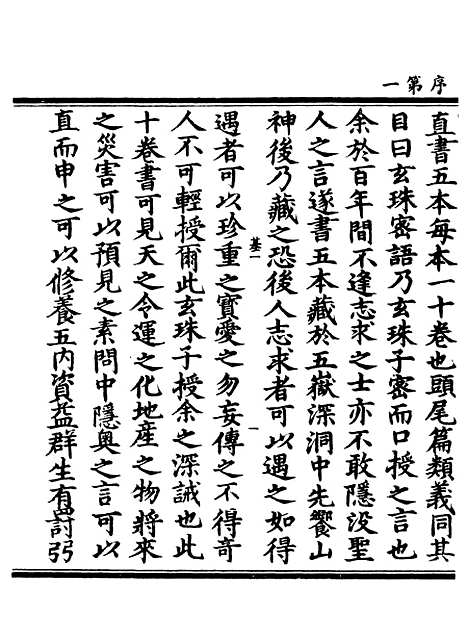 序第一
直書五本每本一十卷也頭尾篇類義同其
目曰玄珠密語乃玄珠子密而口授之言也
余於百年間不逢志求之士亦不敢隱没聖
人之言遂書五本藏於五嶽深洞中先饗山
神後乃藏之恐後人志求者可以遇之如得
基一
一
遇者可以珍重之寶愛之勿妄傳之不得奇
人不可輕授爾此玄珠子授余之深誡也此
十卷書可見天之令運之化地産之物將來
之災害可以預見之素問中隱奥之言可以
直而申之可以修養五内資益群生有罰弱